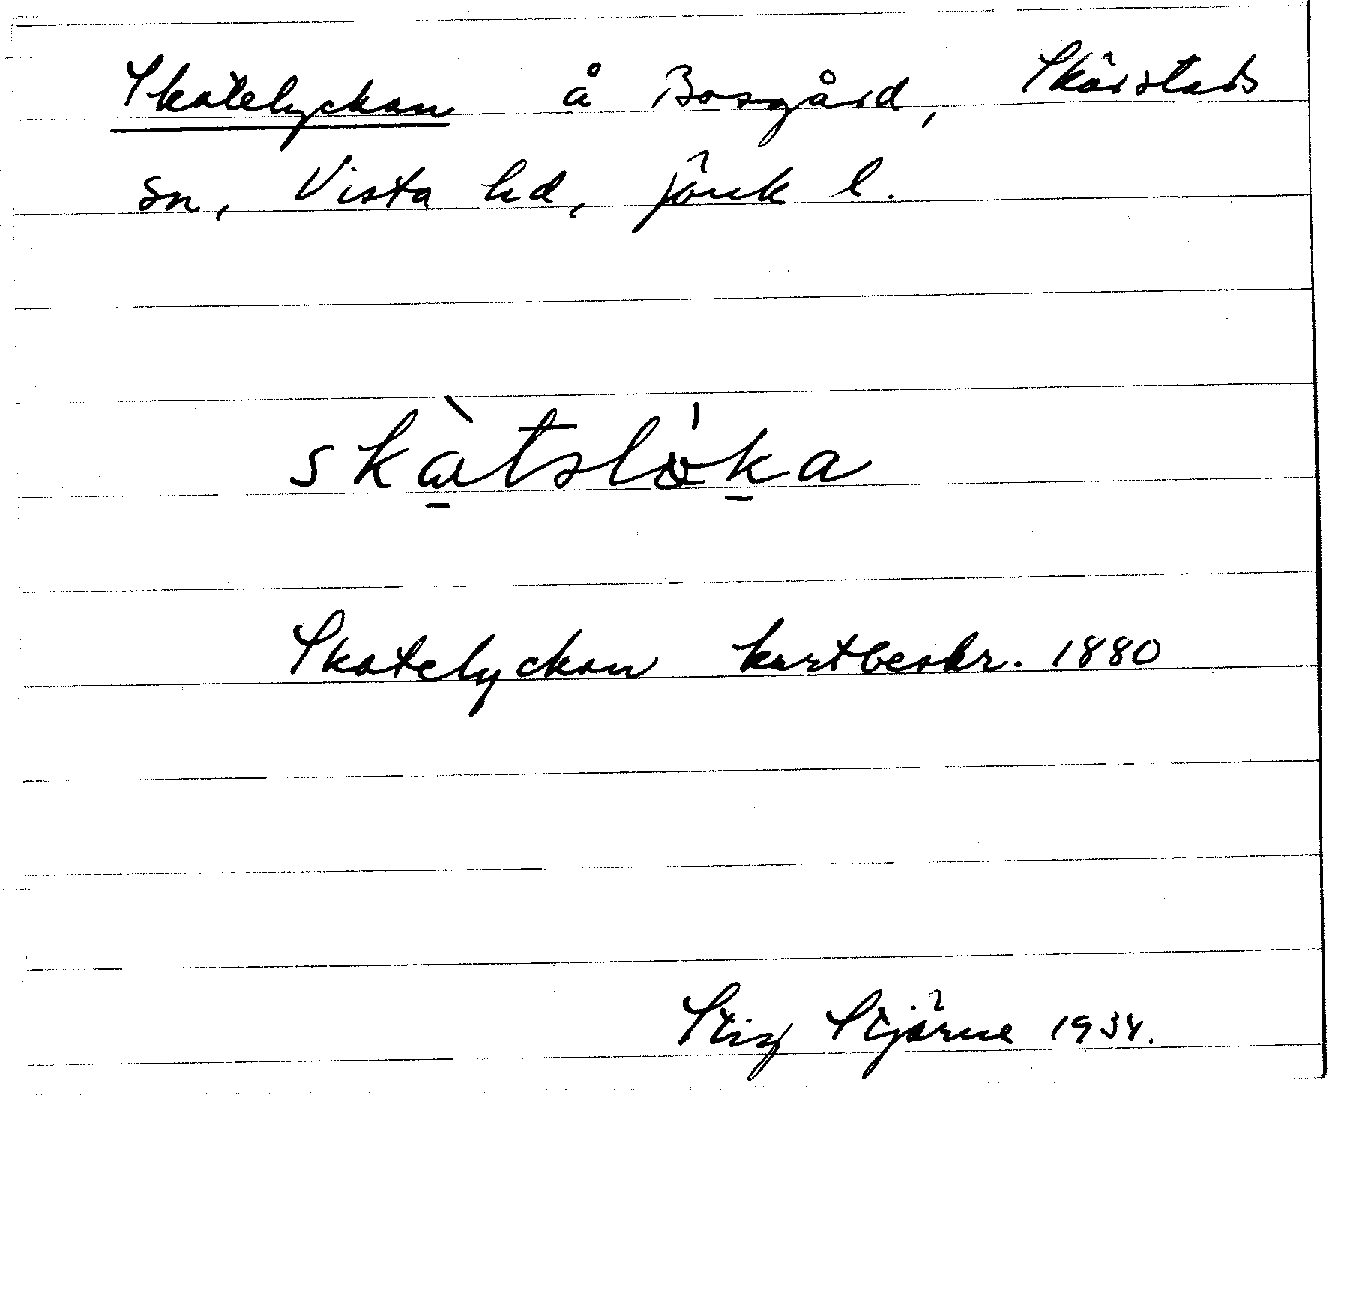 Skatelyckan å Bosgård, Skärstads
sn, Vista hd, Jönk l.
skàtslö́ka
Skatelyckan kartbeskr. 1880
Stig Stjärne 1934.